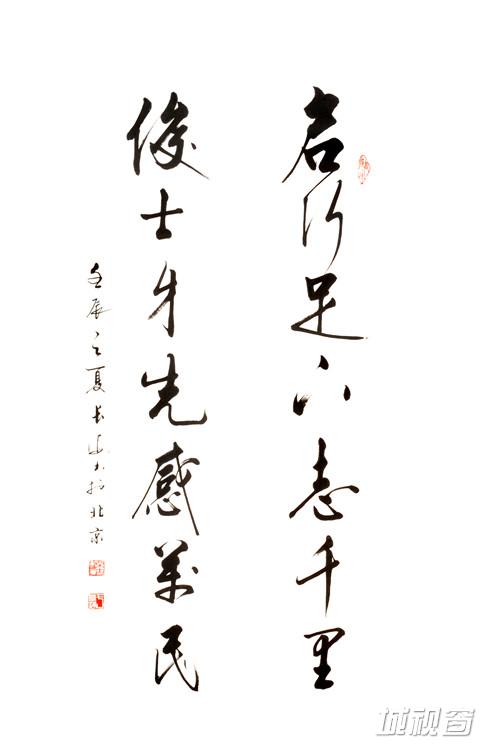 君行足下志千里
俊士身先感萬民
壬辰之夏长海书於北京
城视窗